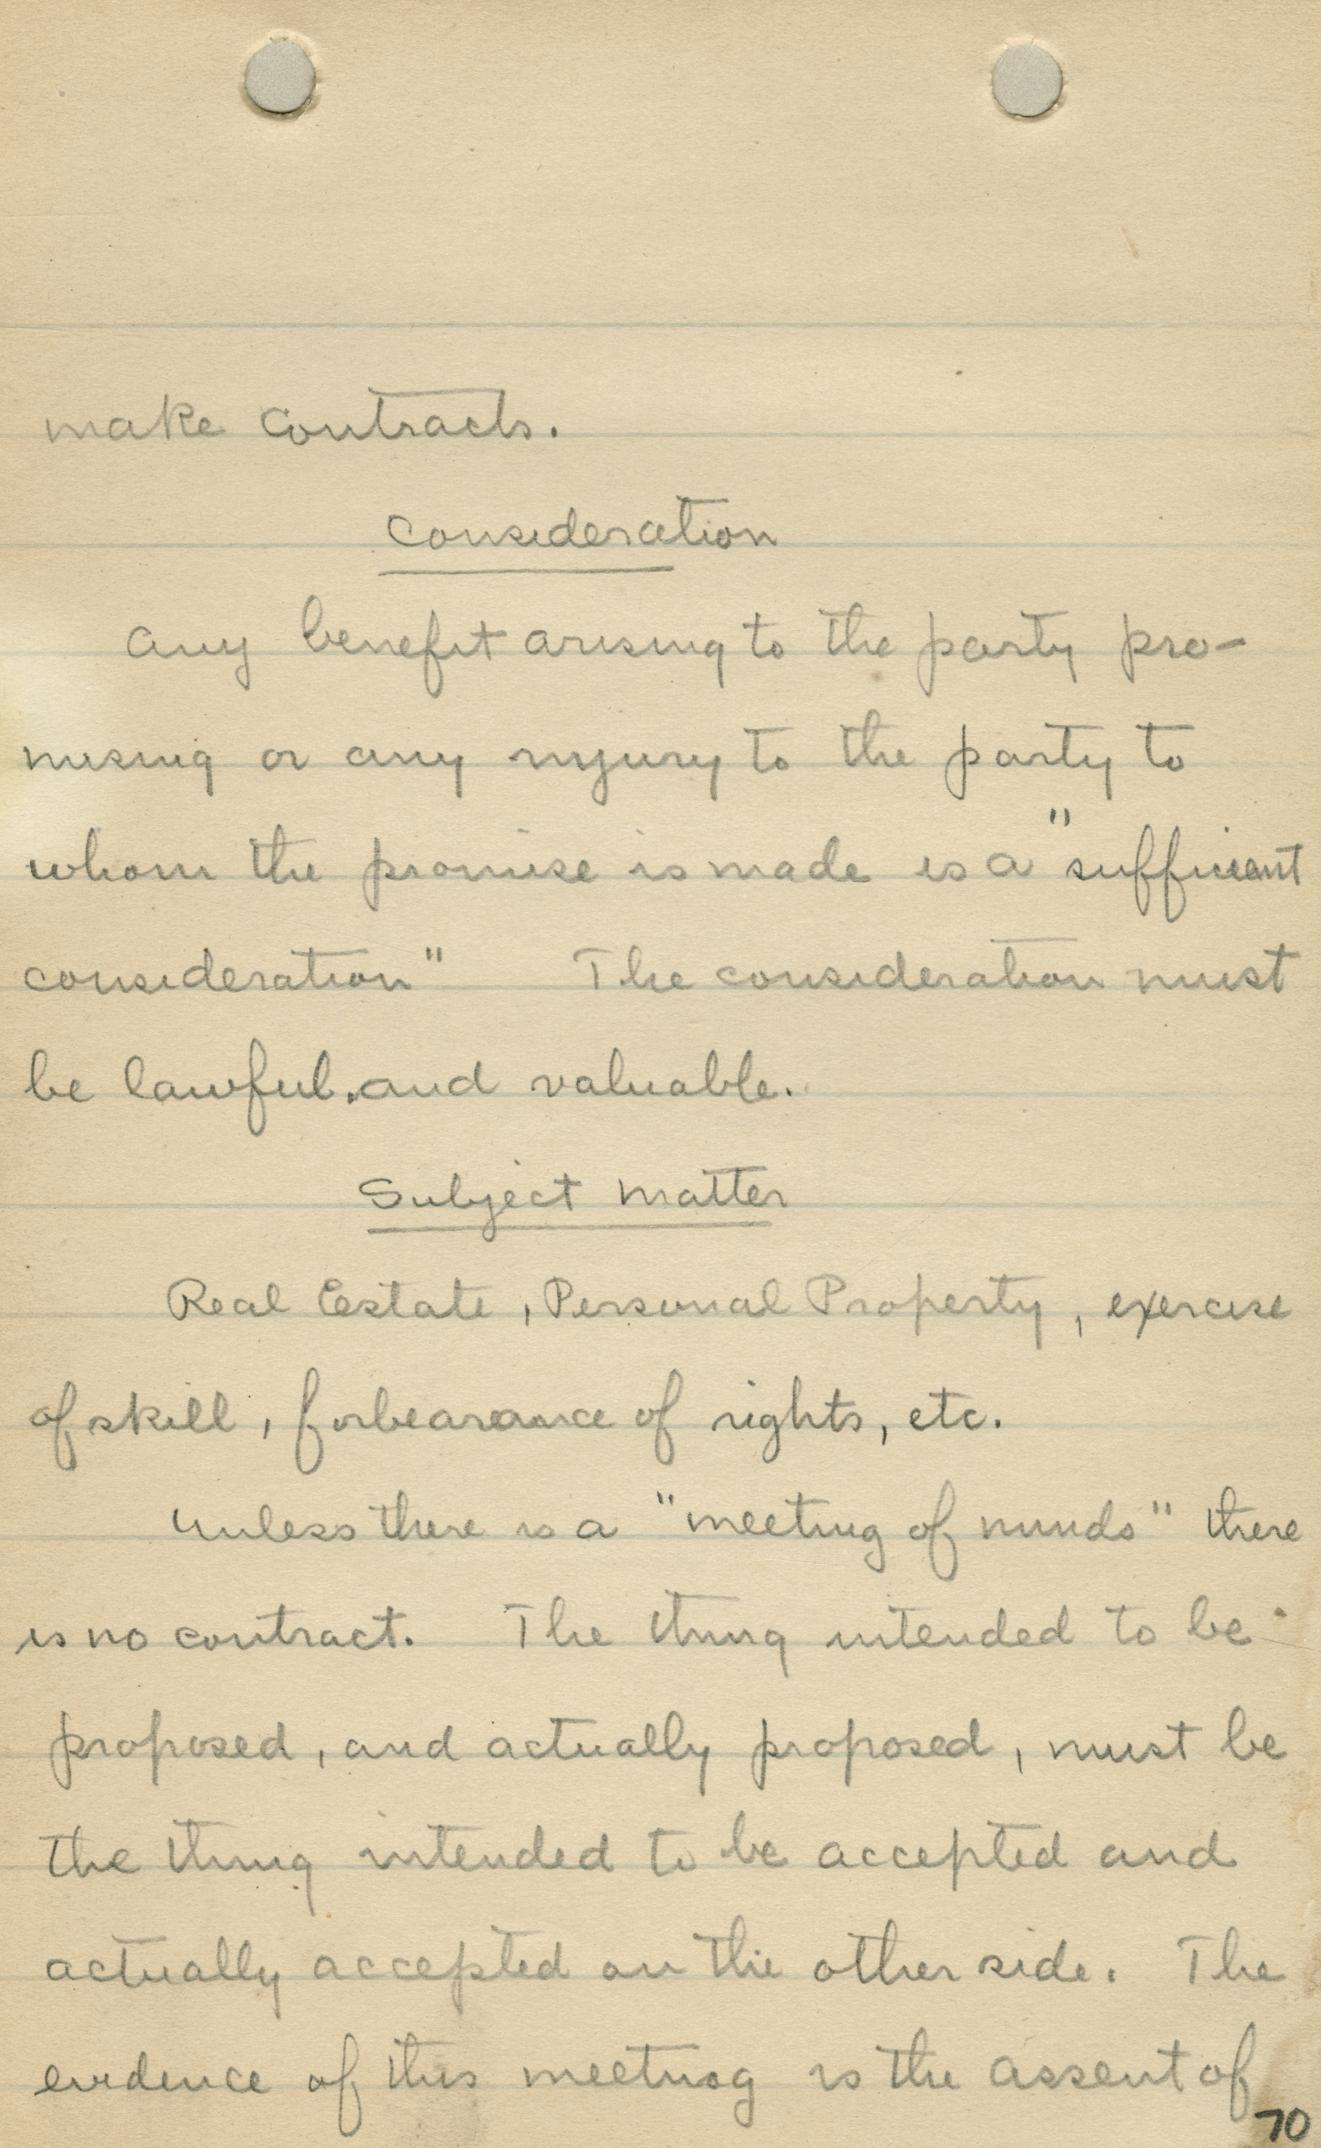 make contracts.
Consideration
Any benefit arising to the party pro-
mising or any injury to the party to
whom the promise is made is a "sufficient
consideration" The consideration must
be lawful, and valuable.
Subject matter
Real Estate, Personal Property, exercise
of skill, forbearance of rights, etc.
Unless there is a "meeting of minds" there
is no contract. The thing intended to be
proposed, and actually proposed, must be
the thing intended to be accepted and
actually accepted on the other side. The
evidence of this meeting is the assent of
70